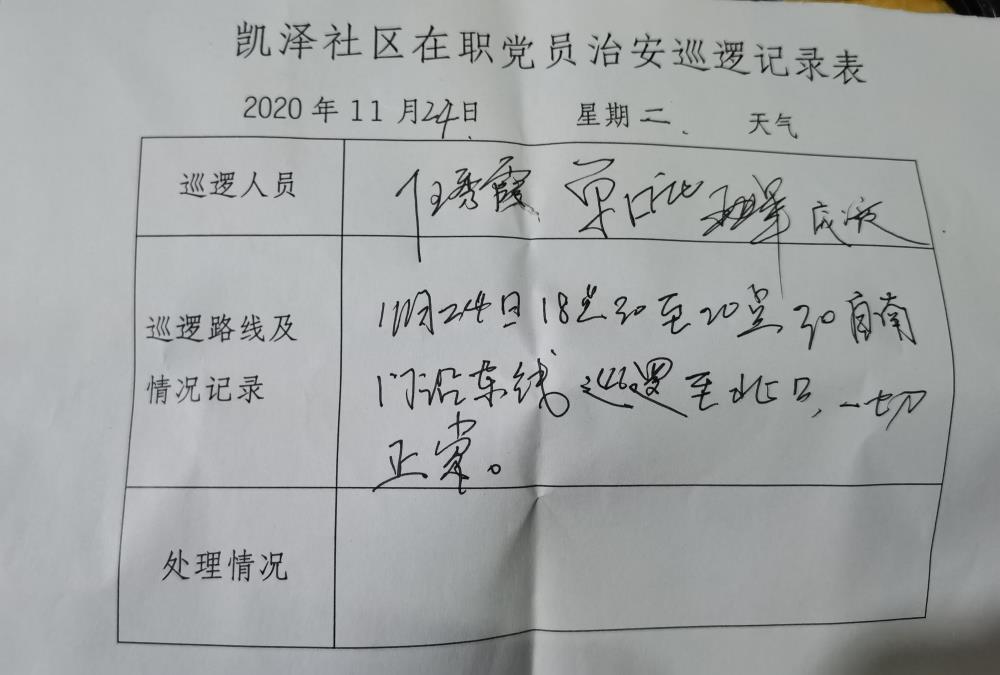 凯泽社区在职党员治安巡逻记录表
2020年11月24日 星期二、 天气
巡逻人员
任秀霞
巡逻路线及
情况记录
11月24日18点30至20点30自南
门沿东线巡逻至北口,一切
正常。
处理情况